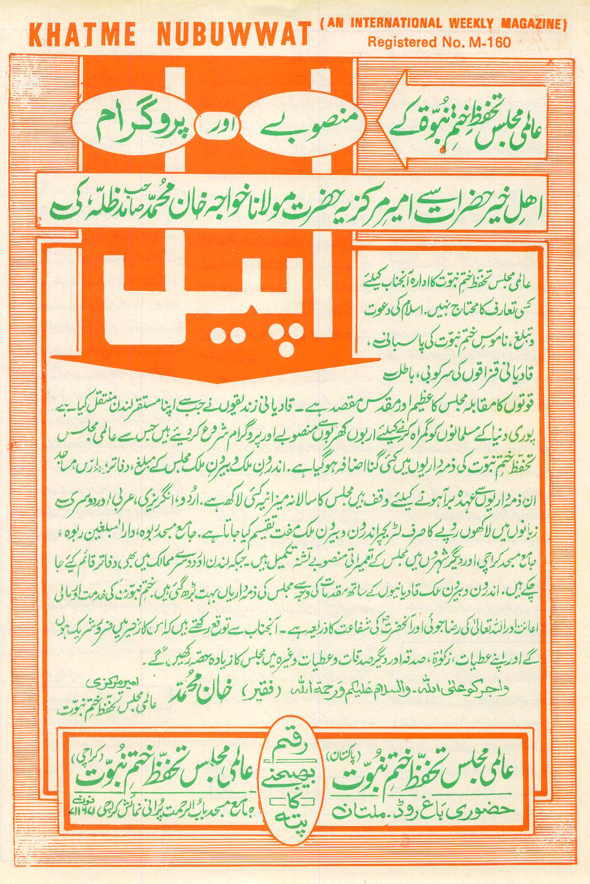 KHATME NUBUWWAT (AN INTERNATIONAL WEEKLY MAGAZINE)
Registered No. M-160
عالمی مجلس تحفظ ختم نبوۃ کے
منصوبے اور پروگرام
اھل خیر حضرات سے امیر مرکزیہ حضرت مولانا خواجہ خان محمد صاحب مدظلہٗ کی
اپیل
عالمی مجلس تحفظ ختم نبوت کا ادارہ آنجناب کیلئے
کسی تعارف کا محتاج نہیں۔ اسلام کی دعوت
و تبلیغ، ناموس ختم نبوت کی پاسبانی،
قادیانی قزاقوں کی سرکوبی، باطل
قوتوں کا مقابلہ مجلس کا عظیم اور مقدس مقصد ہے۔ قادیانی زندیقوں نے جب سے اپنا مستقر لندن منتقل کیا ہے
پوری دنیا کے مسلمانوں کو گمراہ کرنے کیلئے اربوں کھربوں کے منصوبے اور پروگرام شروع کر دیئے ہیں جس سے عالمی مجلس
تحفظ ختم نبوت کی ذمہ داریوں میں کئی گنا اضافہ ہو گیا ہے۔ اندرون ملک و بیرون ملک مجلس کے مبلغ، دفاتر، مدارس مساجد
ان ذمہ داریوں سے عہدہ برآ ہونے کیلئے وقف ہیں مجلس کا سالانہ میزانیہ کئی لاکھ ہے۔ اردو، انگریزی، عربی اور دوسری
زبانوں میں لاکھوں روپے کا صرف لٹریچر اندرون و بیرون ملک مفت تقسیم کیا جاتا ہے۔ جامع مسجد ربوہ، دارالمبلغین ربوہ،
جامع مسجد کراچی، اور دیگر شہروں میں مجلس کے تعمیراتی منصوبے تشنہ تکمیل ہیں۔ جبکہ لندن اور دوسرے ممالک میں بھی دفاتر قائم کئے جا
چکے ہیں۔ اندرون و بیرون ملک قادیانیوں کے ساتھ مقدمات کی وجہ سے مجلس کی ذمہ داریاں بہت بڑھ گئی ہیں۔ ختم نبوت کی خدمت اور مالی
اعانت اور اللہ تعالیٰ کی رضا جوئی اور آنحضرت ﷺ کی شفاعت کا ذریعہ ہے۔ آنجناب سے توقع رکھتے ہیں کہ اس کار خیر میں ضرور شریک ہوں
گے اور اپنے عطیات، زکوٰۃ، صدقہ اور دیگر صدقات و عطیات وغیرہ میں مجلس کا زیادہ حصہ رکھیں گے۔
واجرکم علی اللہ۔ والسلام علیکم ورحمۃ اللہ (فقیر) خان محمد امیر مرکزی
عالمی مجلس تحفظ ختم نبوت
رقم بھیجنے کا پتہ
عالمی مجلس تحفظ ختم نبوت (پاکستان)
حضوری باغ روڈ۔ ملتان
عالمی مجلس تحفظ ختم نبوت (کراچی)
جامع مسجد باب الرحمت پرانی نمائش کراچی